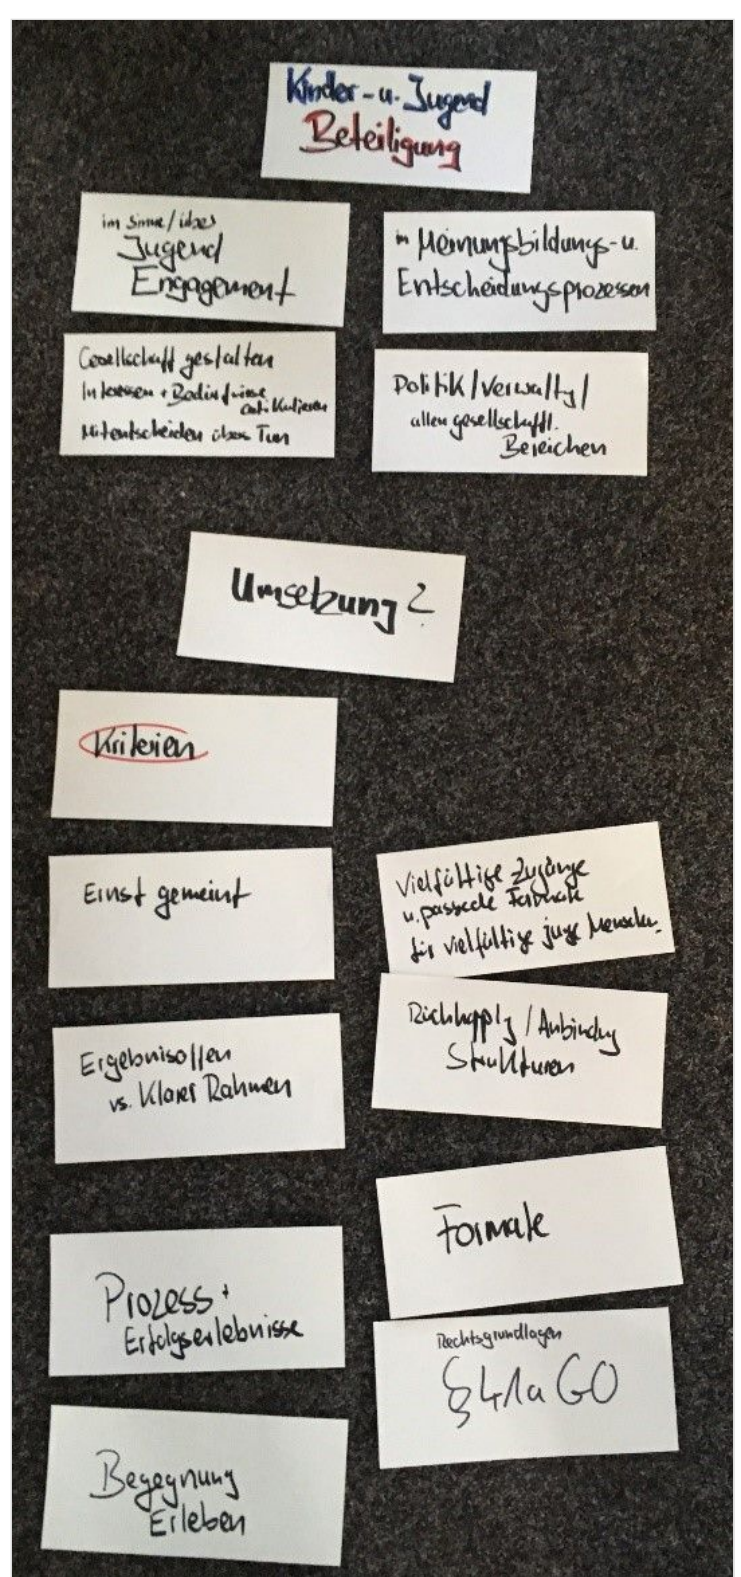 Kinder- u. Jugend
Beteiligung
im Sinne/über
Jugend
Engagement
in Meinungsbildungs- u.
Entscheidungsprozessen
Gesellschaft gestalten
Interessen + Bedürfnisse
artikulieren
Mitentscheiden über Tun
Politik/Verwaltg/
allen gesellschaftl.
Bereichen
Umsetzung?
Kriterien
Ernst gemeint
Vielfältige Zugänge
u. passende Formate
für vielfältige junge Menschen
Ergebnisoffen
vs. Klarer Rahmen
Rückkopplg/Anbindg
Strukturen
Formate
Prozess +
Erfolgserlebnisse
Rechtsgrundlagen
§41a GO
Begegnung
Erleben